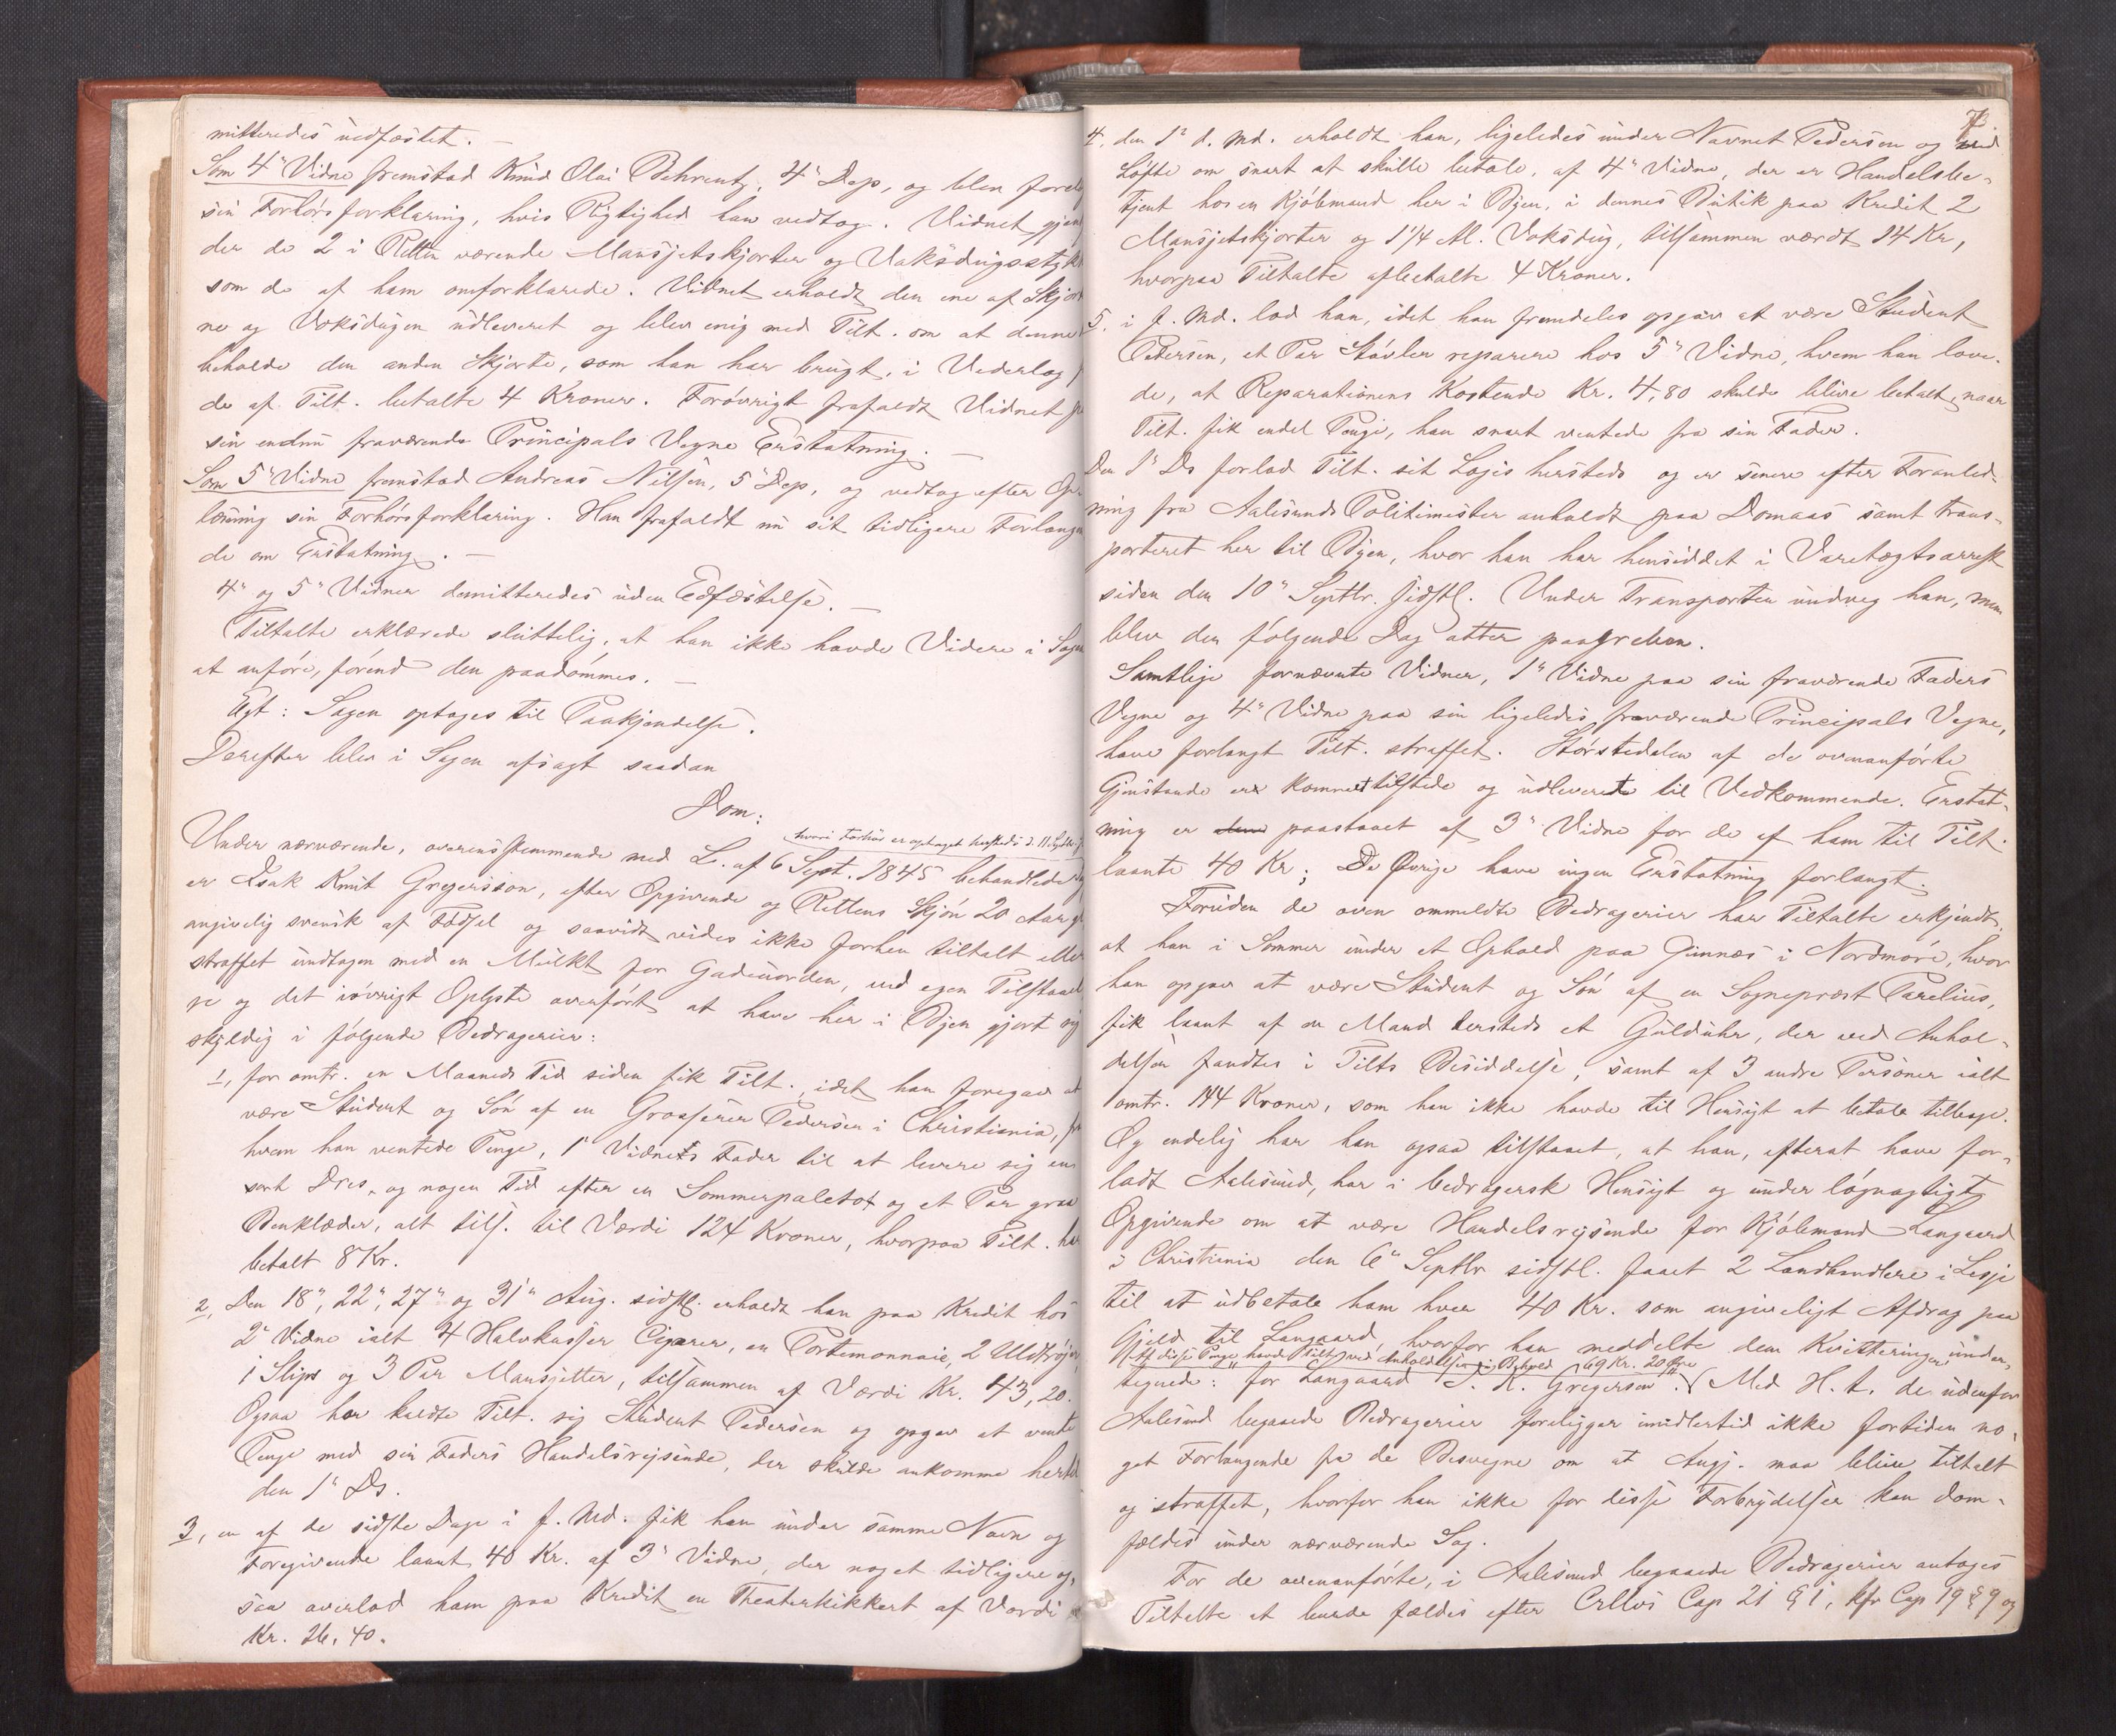 mitteredes uedfæstet. —
Som 4" Vidne fremstod Knud Olai Behrentz, 4" Dep, og blev forel
sin Forhørsforklaring, hvis Rigtighed han vedtog. Vidnet gjen
der de 2 i Retten værende Mansjetskjorter og Voksdugsstyk
som de af ham omforklarede. Vidnet erholdt den ene af Skjor
ne og Voksdugen udleveret og blev enig med Tilt. om at denne
beholde den anden Skjorte, som han har brugt, i Vederlag f
de af Tilt. betalte 4 Kroner. Forøvrigt frafaldt Vidnet p
sin endnu fraværende Principals Vegne Erstatning. —
Som 5" Vidne fremstod Andreas Nilsen, 5" Dep, og vedtog efter Op-
læsning sin Forhørsforklaring. Han frafaldt nu sit tidligere Forlangen
de om Erstatning. —
4" og 5" Vidner demitteredes uden Edfæstelse. —
Tiltalte erklærede sluttelig, at han ikke havde Videre i Sagen
at anføre, førend den paadømmes. —
Egt: Sagen optages til Paakjendelse.
Derefter blev i Sagen afsagt saadan
Dom:
hvori Forhør er optaget hersteds d. 11 Septbr
Under nærværende, overensstemmende med L. af 6 Sept. 1845 behandlede
er Isak Knut Gregersson, efter Opgivende og Rettens Skjøn 20 Aar gl
angivelig svensk af Fødsel og saavidt vides ikke forhen tiltalt eller
straffet undtagen med en Mulkt for Gadeuorden, ved egen Tilstaael
se og det iøvrigt Oplyste overført at have her i Byen gjort sig
skyldig i følgende Bedragerier:
1, for omtr. en Maaneds Tid siden fik Tilt., idet han foregav at
være Student og Søn af en Grosserer Pedersen i Christiania, fra
hvem han ventede Penge, 1" Vidnets Fader til at levere sig en
sort Dres, og nogen Tid efter en Sommerpaletot og et Par graa
Benklæder, alt tils. til Værdi 124 Kroner, hvorpaa Tilt. har
betalt 8 Kr.
2, Den 18", 22", 27" og 31" Aug. sidstl. erholdt han paa Kredit hos
2" Vidne ialt 4 Halvkasser Cigarer, en Portemonnaie, 2 Uldtrøjer,
1 Slips og 3 Par Mansjetter, tilsammen af Værdi Kr. 43,20.
Ogsaa her kaldte Tilt. sig Student Pedersen og opgav at vente
Penge med sin Faders Handelsrejsende, der skulde ankomme hertil
den 1" Ds.
3, en af de sidste Dage i f. Md. fik han under samme Navn og
Foregivende laant 40 Kr. af 3" Vidne, der noget tidligere og-
saa overlod ham paa Kredit en Theaterkikkert af Værdi
Kr. 26,40.
7
4, den 1" d. Md. erholdt han, ligeledes under Navnet Pedersen og ved
Løfte om snart at skulle betale, af 4" Vidne, der er Handelsbe-
tjent hos en Kjøbmand her i Byen, i dennes Butik paa Kredit 2
Mansjetskjorter og 1 1/4 Al. Voksdug, tilsammen værdt 14 Kr,
hvorpaa Tiltalte afbetalte 4 Kroner.
5. i f. Md. lod han, idet han fremdeles opgav at være Student
Pedersen, et Par Støvler reparere hos 5" Vidne, hvem han love-
de, at Reparationens Kostende Kr. 4,80 skulde blive betalt, naar
Tilt. fik endel Penge, han snart ventede fra sin Fader.
Den 1" Ds forlod Tilt. sit Logis hersteds og er senere efter Foranled-
ning fra Aalesunds Politimester anholdt paa Domaas samt trans-
porteret her til Byen, hvor han har hensiddet i Varetægtsarrest
siden den 10" Septbr. sidstl. Under Transporten undveg han, men
blev den følgende Dag atter paagreben.
Samtlige fornævnte Vidner, 1" Vidne paa sin fraværende Faders
Vegne og 4" Vidne paa sin ligeledes fraværende Principals Vegne,
have forlangt Tilt. straffet. Størstedelen af de ovenanførte
Gjenstande er kommet tilstede og udleveret til Vedkommende. Erstat-
ning er paastaaet af 3" Vidne for de af ham til Tilt.
laante 40 Kr; De Øvrige have ingen Erstatning forlangt.
Foruden de oven ommeldte Bedragerier har Tiltalte erkjendt,
at han i Sommer under et Ophold paa Gimnæs i Nordmøre, hvor
han opgav at være Student og Søn af en Sogneprest Parelius,
fik laant af en Mand dersteds et Gulduhr, der ved Anhol-
delsen fandtes i Tilts Besiddelse, samt af 3 andre Personer ialt
omtr. 144 Kroner, som han ikke havde til Hensigt at betale tilbage.
Og endelig har han ogsaa tilstaaet, at han, efterat have for-
ladt Aalesund, har i bedragersk Hensigt og under løgnagtigt
Opgivende om at være Handelsrejsende for Kjøbmand Langaard
i Christiania den 6" Septbr sidstl. faaet 2 Landhandlere i Lesje
til at udbetale ham hver 40 Kr. som angiveligt Afdrag paa
Gjeld til Langaard, hvorfor han meddelte dem Kvitteringer, under-
Af disse Penge havde Tilt. ved Anholdelsen i Behold 69 Kr. 20 Øre
tegnede: "for Langaard I. K. Gregersen". Med H. t. de udenfor
Aalesund begaaede Bedragerier foreligger imidlertid ikke fortiden no-
get Forlangende fra de Besvegne om at Angj. maa blive tiltalt
og straffet, hvorfor han ikke for disse Forbrydelser kan dom-
fældes under nærværende Sag.
For de ovenanførte, i Aalesund begaaede Bedragerier antages
Tiltalte at burde fældes efter Crllvs Cap 21 § 1, kfr Cap 19 § 9 og